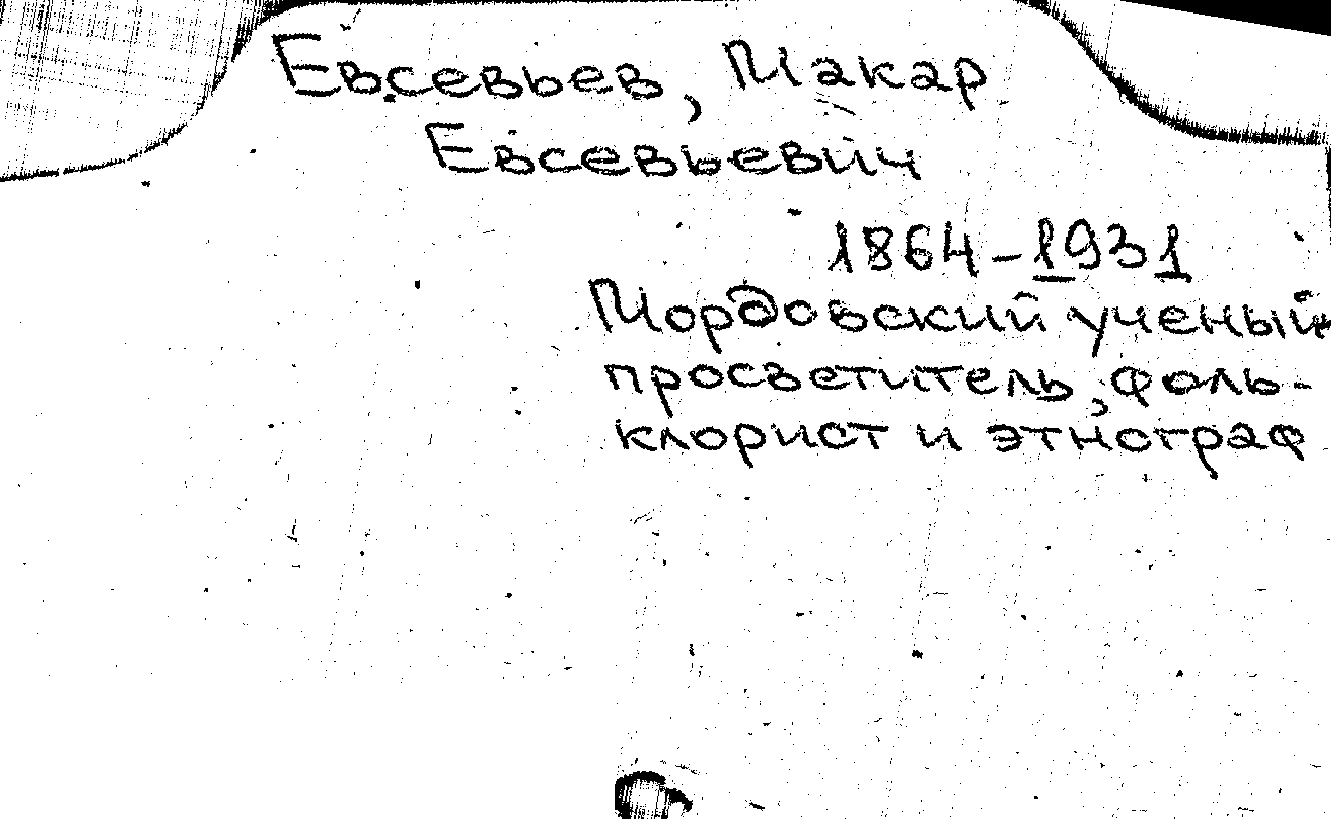 Евсевьев, Макар
Евсевьевич
1864-1931
Мордовский ученый
просветитель, фоль-
клорист и этнограф